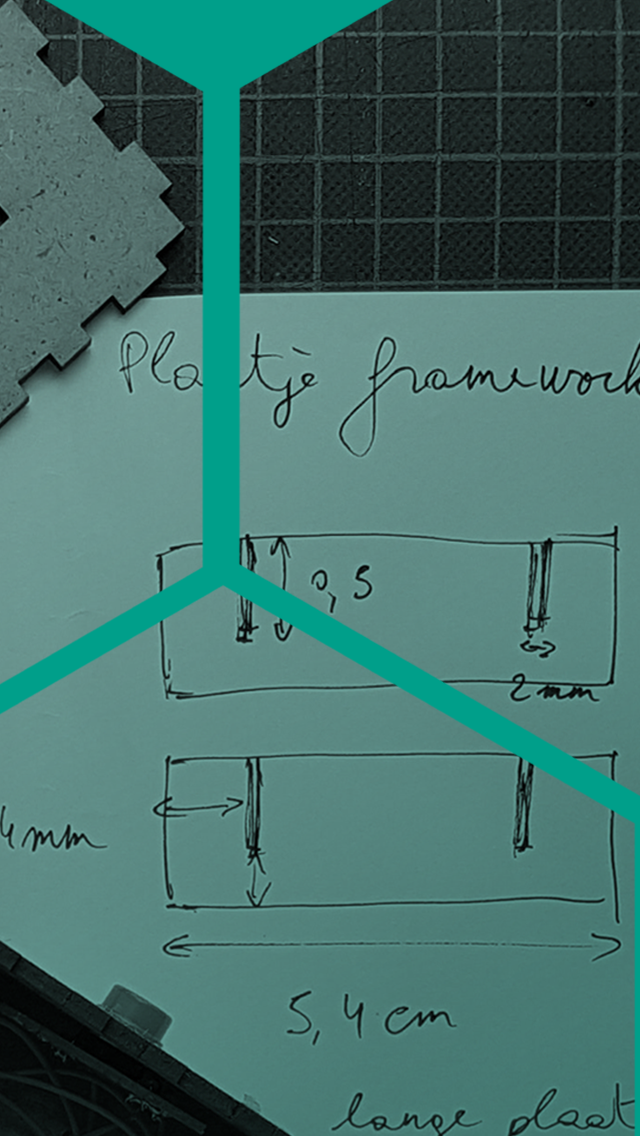 Plaatje framework
0,5
2 mm
4mm
5,4 cm
lange plaat